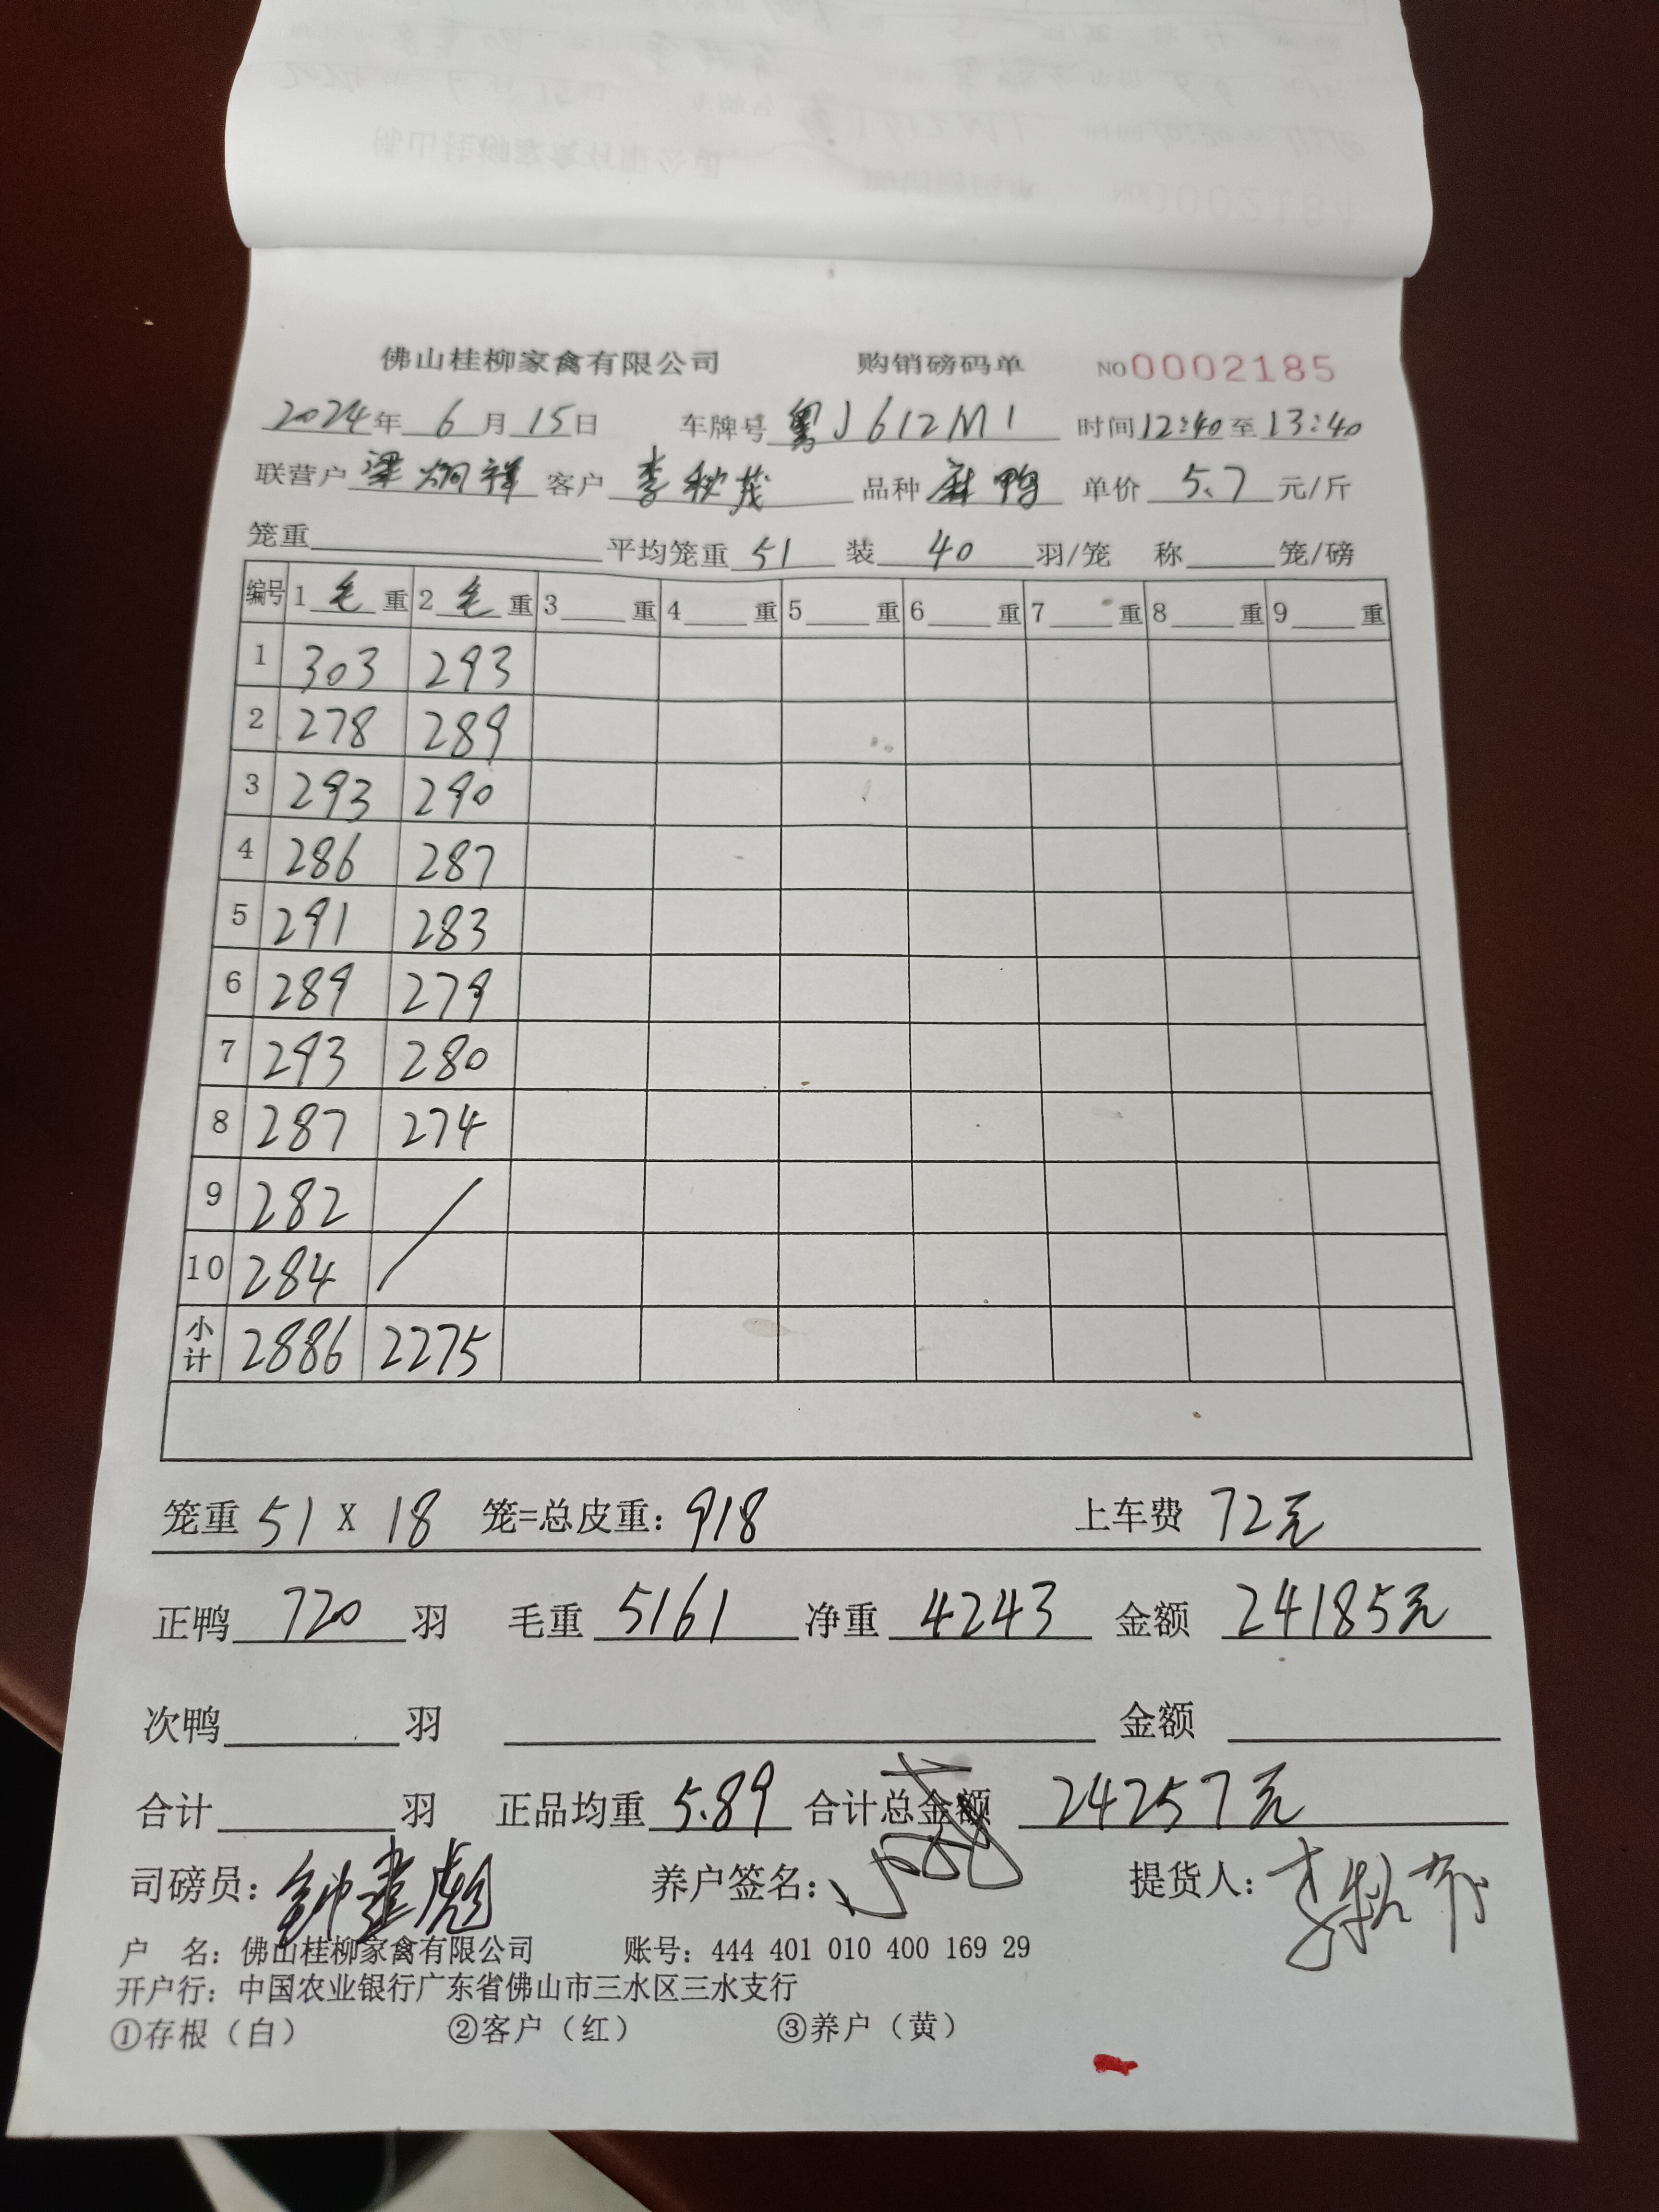 佛山桂柳家禽有限公司 购销磅码单 NO 0002185
2024年 6 月 15 日 车牌号 粤J612M1 时间 12:40 至 13:40
联营户 梁炳祥 客户 李秋茂 品种 麻鸭 单价 5.7 元/斤
笼重 平均笼重 51 装 40 羽/笼 称 笼/磅
编号 1 毛 重 2 毛 重 3 重 4 重 5 重 6 重 7 重 8 重 9 重
1 303 293
2 278 289
3 293 290
4 286 287
5 291 283
6 289 279
7 293 280
8 287 274
9 282
10 284
小计 2886 2275
笼重 51 X 18 笼=总皮重: 918 上车费 72元
正鸭 720 羽 毛重 5161 净重 4243 金额 24185元
次鸭 羽 金额
合计 羽 正品均重 5.89 合计总金额 24257元
司磅员: 钟建彪 养户签名: 提货人:
户 名: 佛山桂柳家禽有限公司 账号: 444 401 010 400 169 29
开户行: 中国农业银行广东省佛山市三水区三水支行
①存根（白） ②客户（红） ③养户（黄）